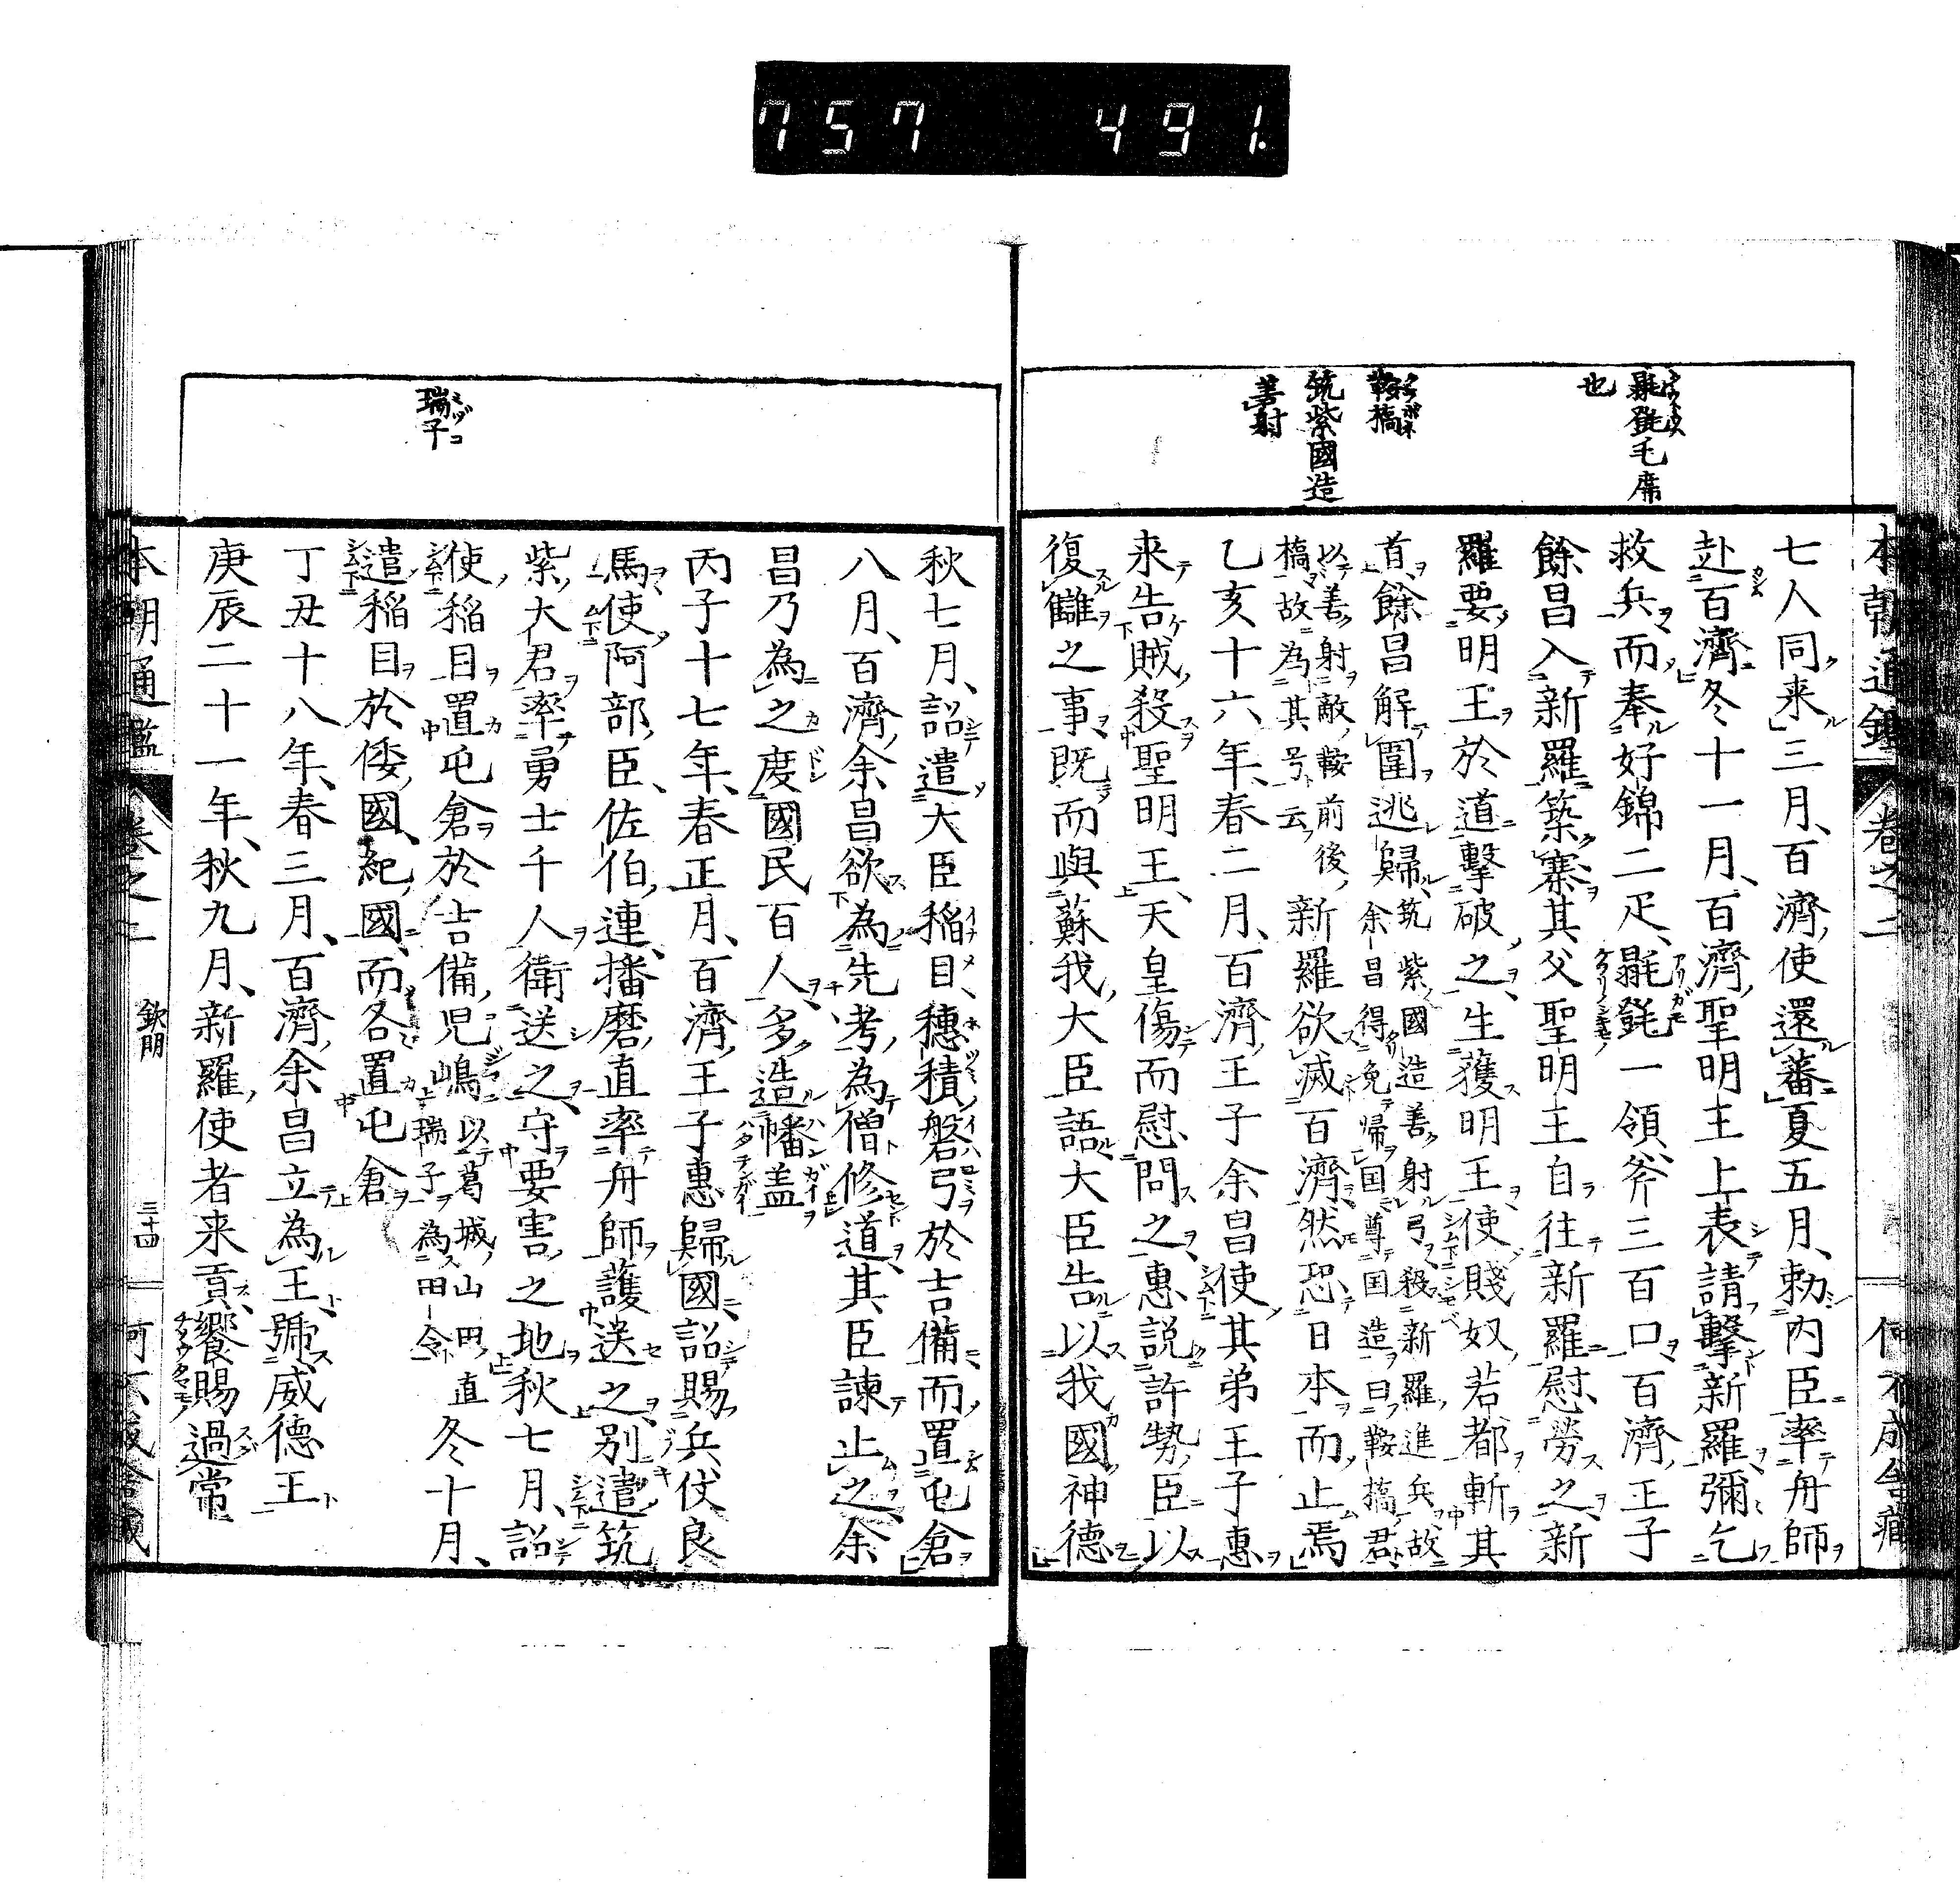 757 491.
羅毲毛席
也
鞍橋
筑紫國造
善射
本朝通鑑 卷之二
七人同来三月、百濟使還蕃夏五月、勅内臣率舟師
赴百濟冬十一月、百濟聖明王上表請擊新羅彌乞
救兵而奉好錦二疋、毲一領、斧三百口百濟王子
餘昌入新羅築寨其父聖明王自往新羅慰勞之新
羅要明王於道擊破之生獲明王使賤奴若都斬其
首、餘昌解圍逃歸、
筑紫國造善射弓、殺新羅進兵、故
余昌得免歸国尊国造曰鞍橋君、
以善射敵鞍前後、
橋故為其号云
新羅欲滅百濟、然恐日本而止焉
乙亥十六年、春二月、百濟王子余昌使其弟王子惠
来告賊殺聖明王、天皇傷而慰問之、惠説許勢臣以
復讎之事、既而與蘇我大臣語大臣告以我國神德
秋七月、詔遣大臣稲目、穗積磐弓於吉備而置屯倉
八月、百濟余昌欲為先考為僧修道、其臣諫止之余
昌乃為之度國民百人、多造幡盖
丙子十七年、春正月、百濟王子惠歸國、詔賜兵伏良
馬使阿部臣、佐伯連、播磨直率舟師護送之、別遣筑
紫大君率勇士千人衛送之、守要害之地秋七月、詔
使稲目置屯倉於吉備児嶋
以葛城山田直
瑞子為田令
冬十月、
遣稲目於倭國、紀國、而各置屯倉
丁丑十八年、春三月、百濟余昌立為王、號威德王
庚辰二十一年、秋九月、新羅使者来貢、饗賜過常
瑞子
本朝通鑑 卷之二 欽明 三十四